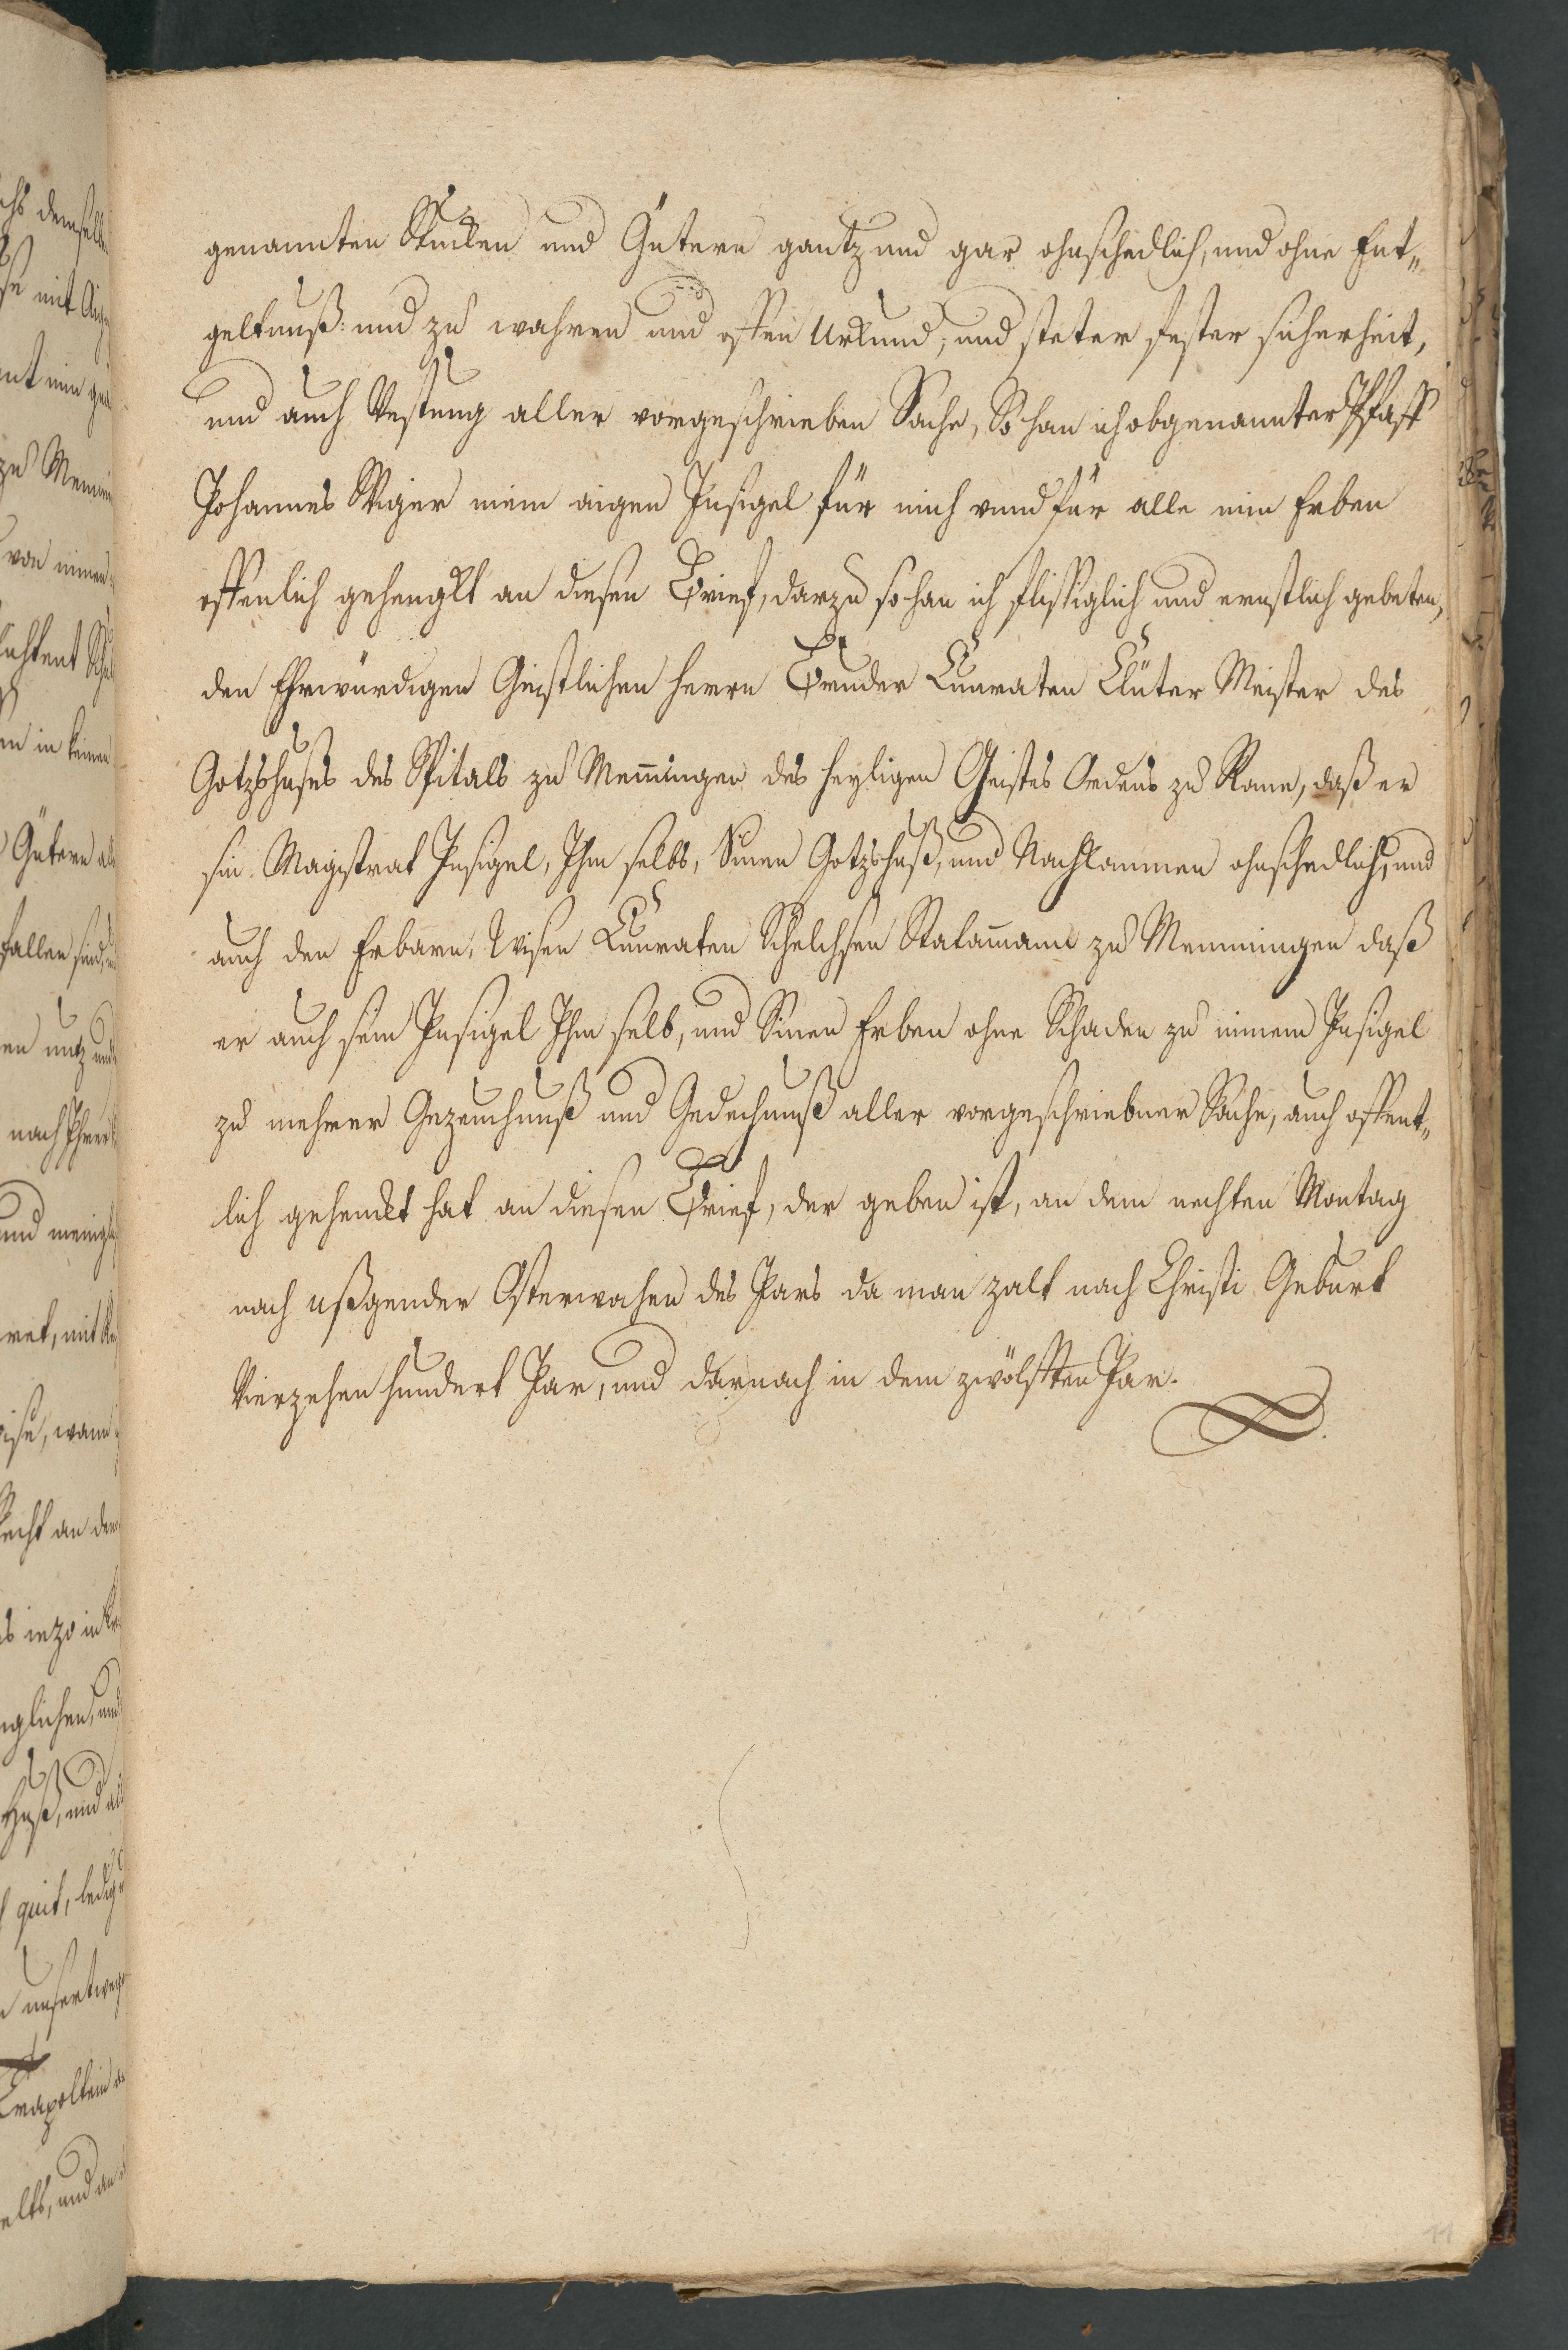 genannten Stucken und Gütern gantz und gar ohnschedlich, und ohne Ent„
geltnuß: und zu wahren und offen Urkund, und steter fester sicherheit,
und auch Vestung aller vorgeschrieben Sache, So han ich obgenannter Pfaff
Johannes Wiger mein aigen Insigel für mich vnnd für alle min Erben
offenlich gehengkt an diesen Brief, darzu so han ich flissiglich und ernstlich gebeten,
den Ehrwürdigen Geistlichen Herrn Bruder Cunraten Clüter Meister des
Gotzshuses des Spitals zu Memingen des heyligen Geistes Ordens zu Rome, daß er
sin Magistrat Insigel, Ihm selbs, Sinen Gotzshuß, und Nachkommen ohnschedlich, und
auch den Erbarn, Wisen Cunraten Schelchsen Statamann zu Memmingen daß
er auch sein Insigel Ihm selb, und Sinen Erben ohne Schaden zu minem Insigel
zu mehrer Gezeuchnuß und Gedechnuß aller vorgeschriebner Sache, auch offent„
lich gehenckt hat an diesen Brief, der geben ist, an dem nechsten Montag
nach ußgender Osterwochen des Jars da man zalt nach Christi Geburt
Vierzehen hundert Jar, und darnach in dem zwölfften Jar.
11